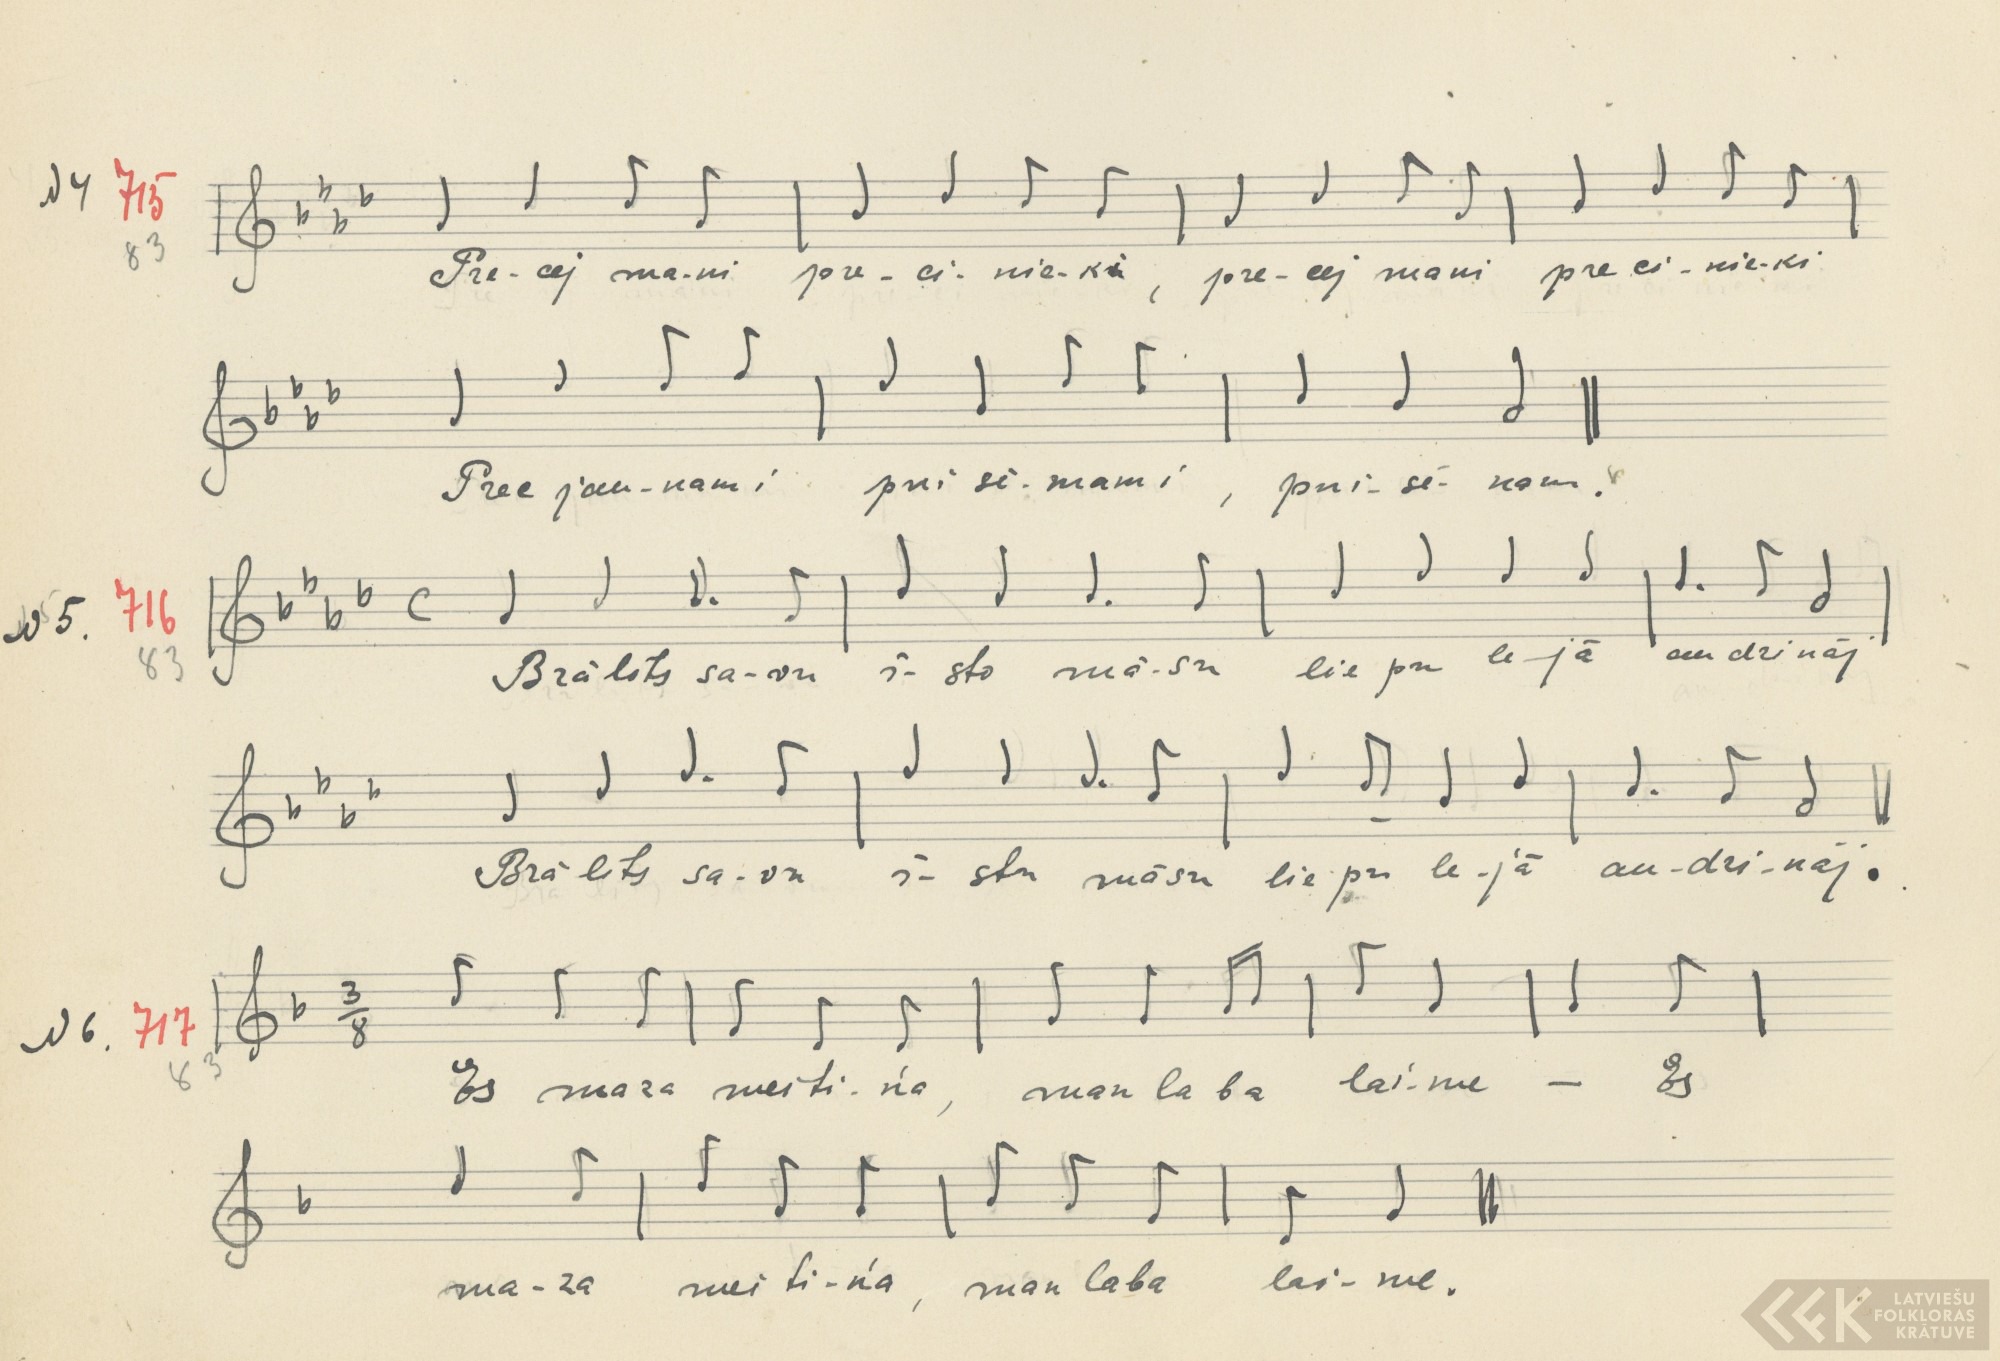 N 4 715
83
Pre-cej ma-ni pre-ci-nie-ki, pre-cej mani preci-nie-ki
Prec jau-nami puisi-mami, pui-sē-nam.
N 5. 716
83
C
Brālīts sa-vu ī-sto mā-su liepu le-jā audzināj
Brālīts sa-vu ī-stu māsu liepu le-jā au-dzi-nāj.
N 6. 717
83
3/8
Es maza meiti-ńa, man laba lai-me — Es
ma-za meiti-ńa, man laba lai-me.
LATVIEŠU
FOLKLORAS
KRĀTUVE